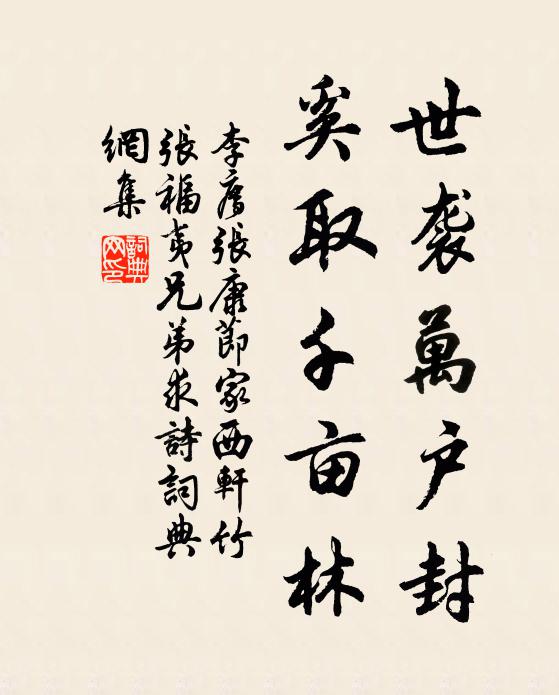 世袭萬户封
奚取千亩林
李廌張康節家西軒竹
張福夷兄弟求詩詞典
網集
詞典网印